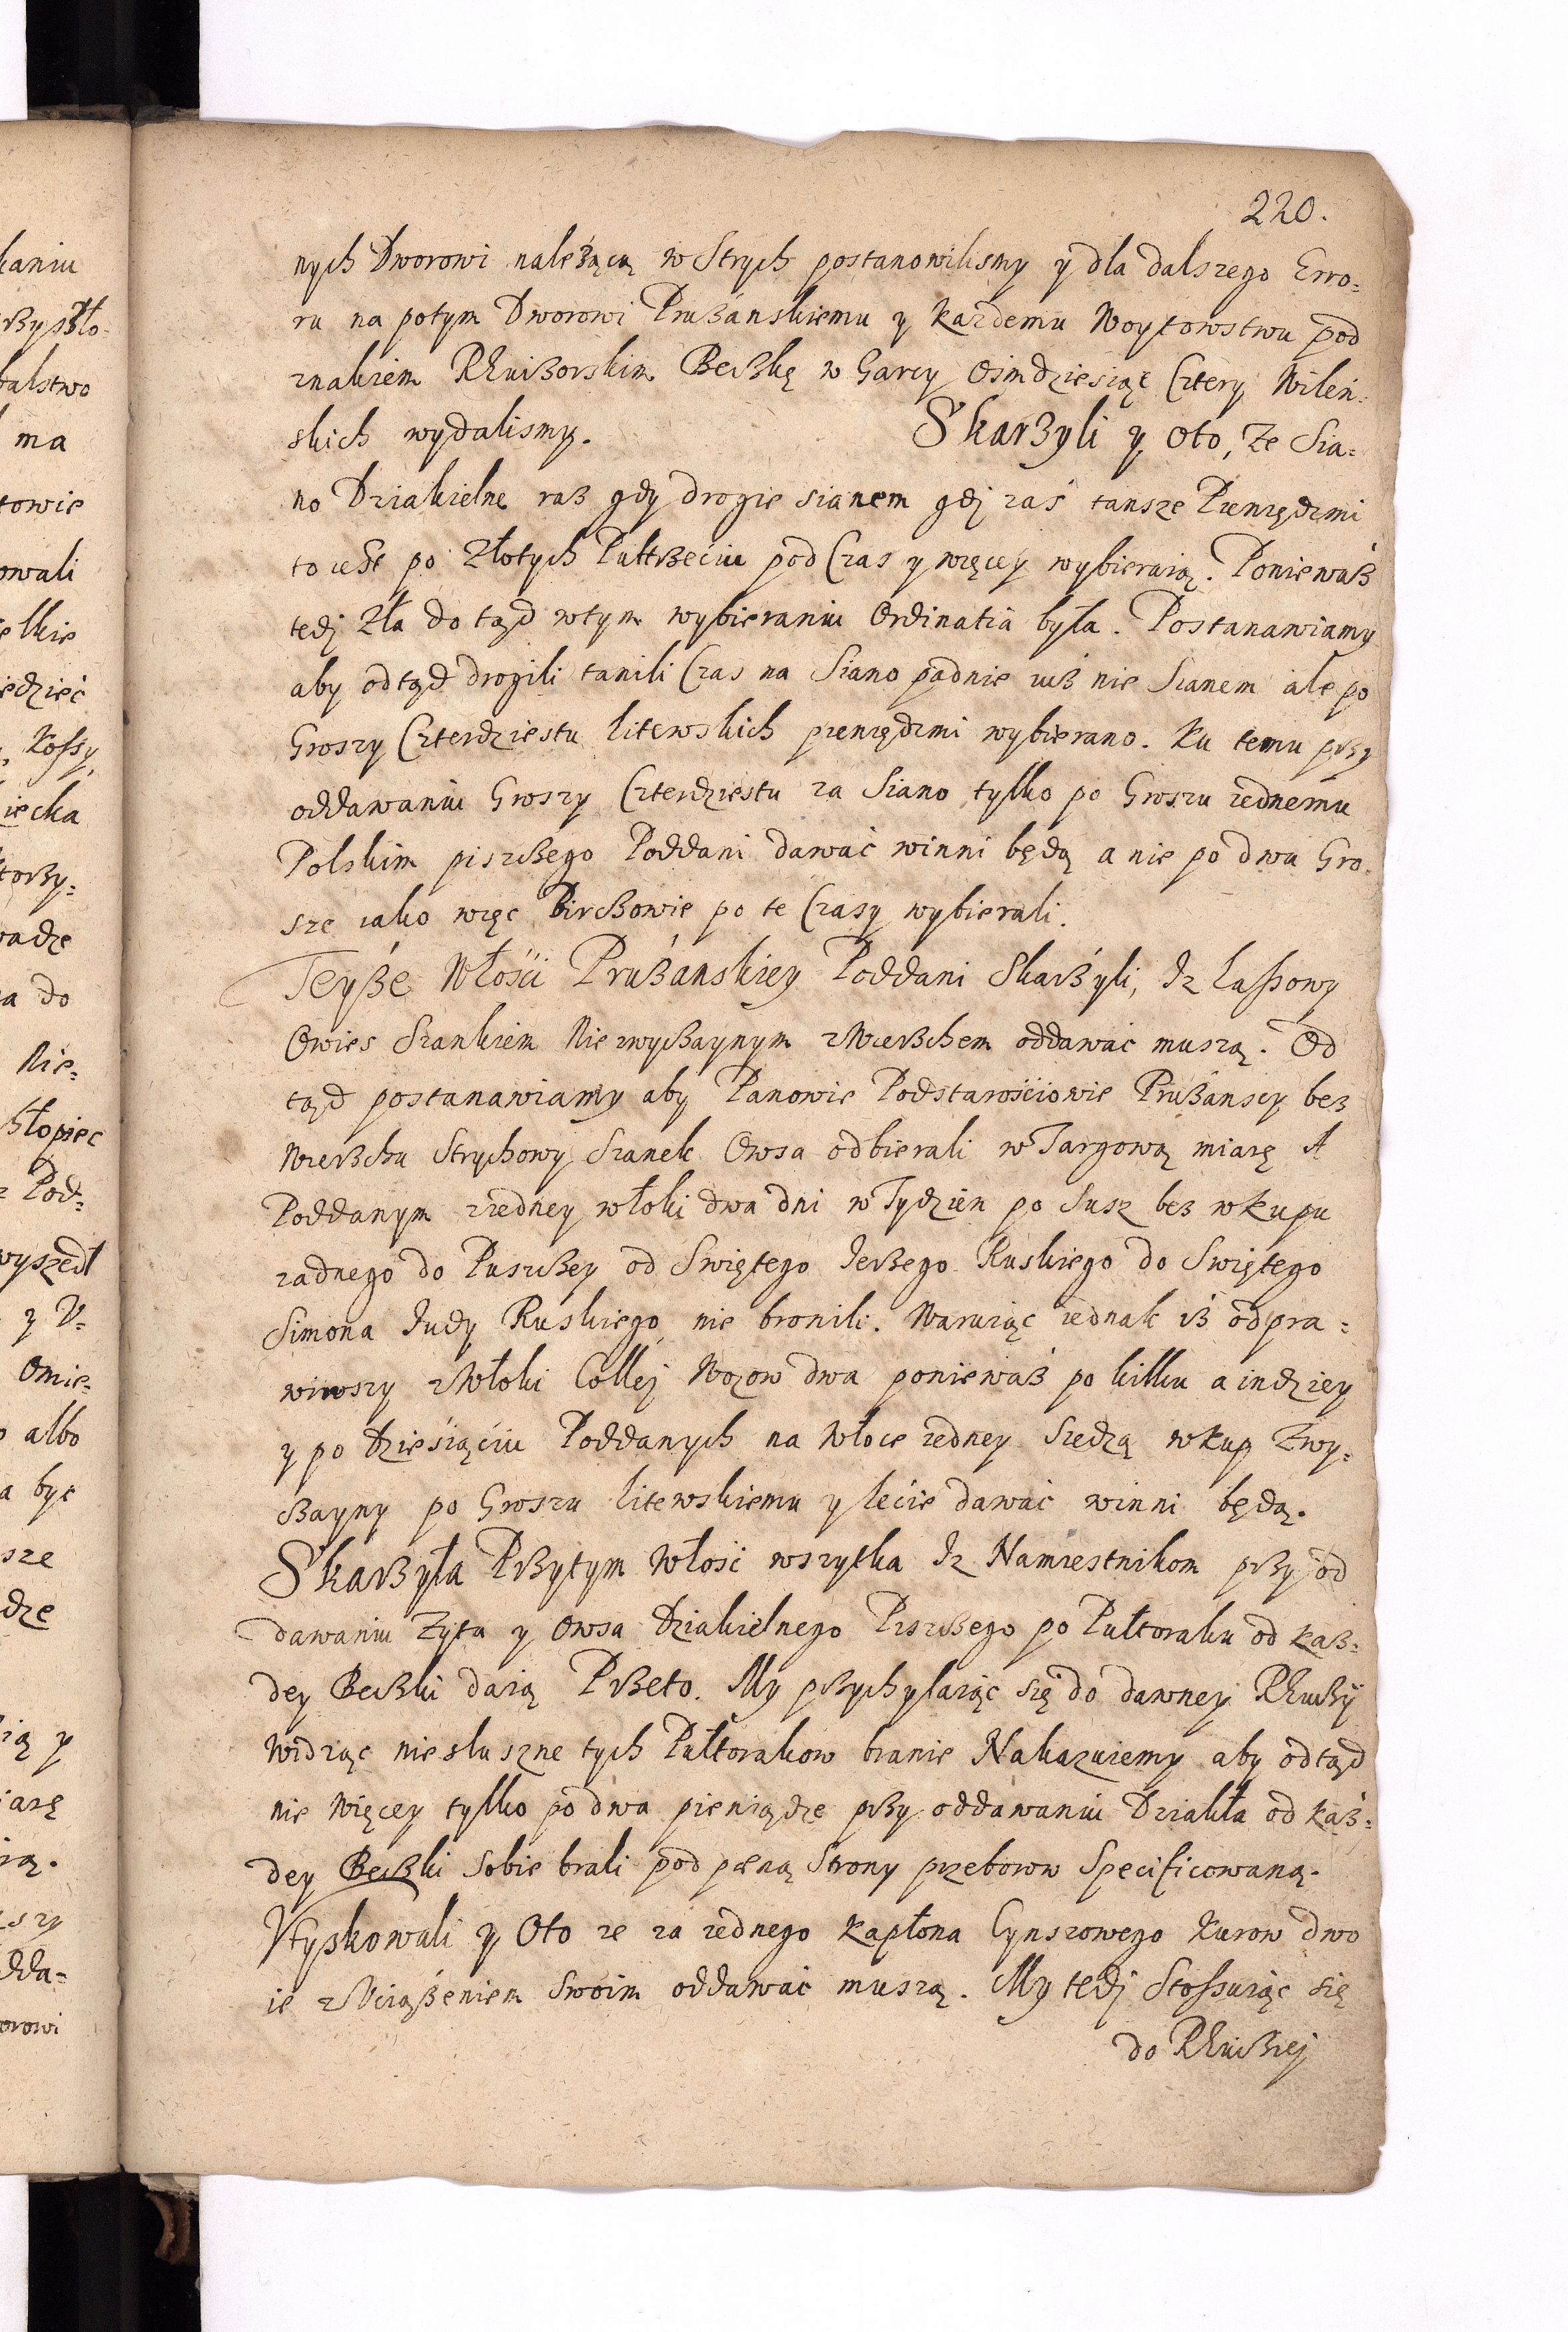 220.
nych Dworowi należącą w Strych postanowilismy y dla dalszego Erro=
ru na potym Dworowi Prużanskiemu y każdemu Woytowstwu pod
znakiem Rewizorskim Beczkę w Garcy Osimdziesiąt Cztery Wilen=
skich wydalismy. Skarżyli y oto, Ze Sia=
no Dziakielne raz gdy drogie sianem gdj zaś tansze Pieniędzmi
to iest po Złotych Pułtrzeciu pod Czas y więcey wybieraią. Ponieważ
tedj Zła do tąd wtym wybieraniu Ordinatia była. Postanawiamy
aby odtąd drogili tanili Czas na Siano padnie iuż nie Sianem ale po
Groszy Czterdziestu litewskich pieniędzmi wybierano. Ku temu przy
oddawaniu Groszy Czterdziestu za Siano tylko po Groszu iednemu
Polskim piszczego Poddani dawać winni będą a nie po dwa Gro=
sze iako więc Birczowie po te Czasy wybierali.
Teyże Włości Prużanskiey Poddani Skarżyli, Iz Lassowy
Owies Szankiem Niezwyczaynym zWierzchem oddawać muszą. Od
tąd postanawiamy aby Panowie Podstarościowie Prużanscy bez
Wierzchu Strychowy Szanek Owsa odbierali w Targową miarę A
Poddanym ziedney włoki dwa dni w Tydzien po Susz bez wkupu
zadnego do Puszczey od Swiętego Jerzego Ruskiego do Swiętego
Simona Judy Ruskiego nie bronili. Waruiąc iednak iż odpra=
wiwszy zWłoki Collej Wozow dwa ponieważ po kilku a indziey
y po dziesiąciu Poddanych na Włoce iedney Siedzą wkup Zwy=
czayny po Groszu litewskiemu y lecie dawać winni będą.
Skarżyła Przytym Włość wszytka Iz Namiestnikom przy od
dawaniu Zyta y Owsa Dziakielnego Piszczego po Pułtoraku od każ=
dey Beczki daią Przeto. My przychylaiąc się do dawney Rewizij
widząc niesłuszne tych Pułtorakow branie Nakazuiemy aby odtąd
nie Więcey tylko po dwa pieniądze przy oddawaniu Dziakła od każ=
dey Beczki Sobie brali pod pęną Strony przeborow Specificowaną.
Vtyskowali y Oto ze za iednego kapłona Cynszowego Kurow dwo
ie zVciążeniem Swoim oddawać muszą. My tedj Stossuiąc się
do Rewiziej